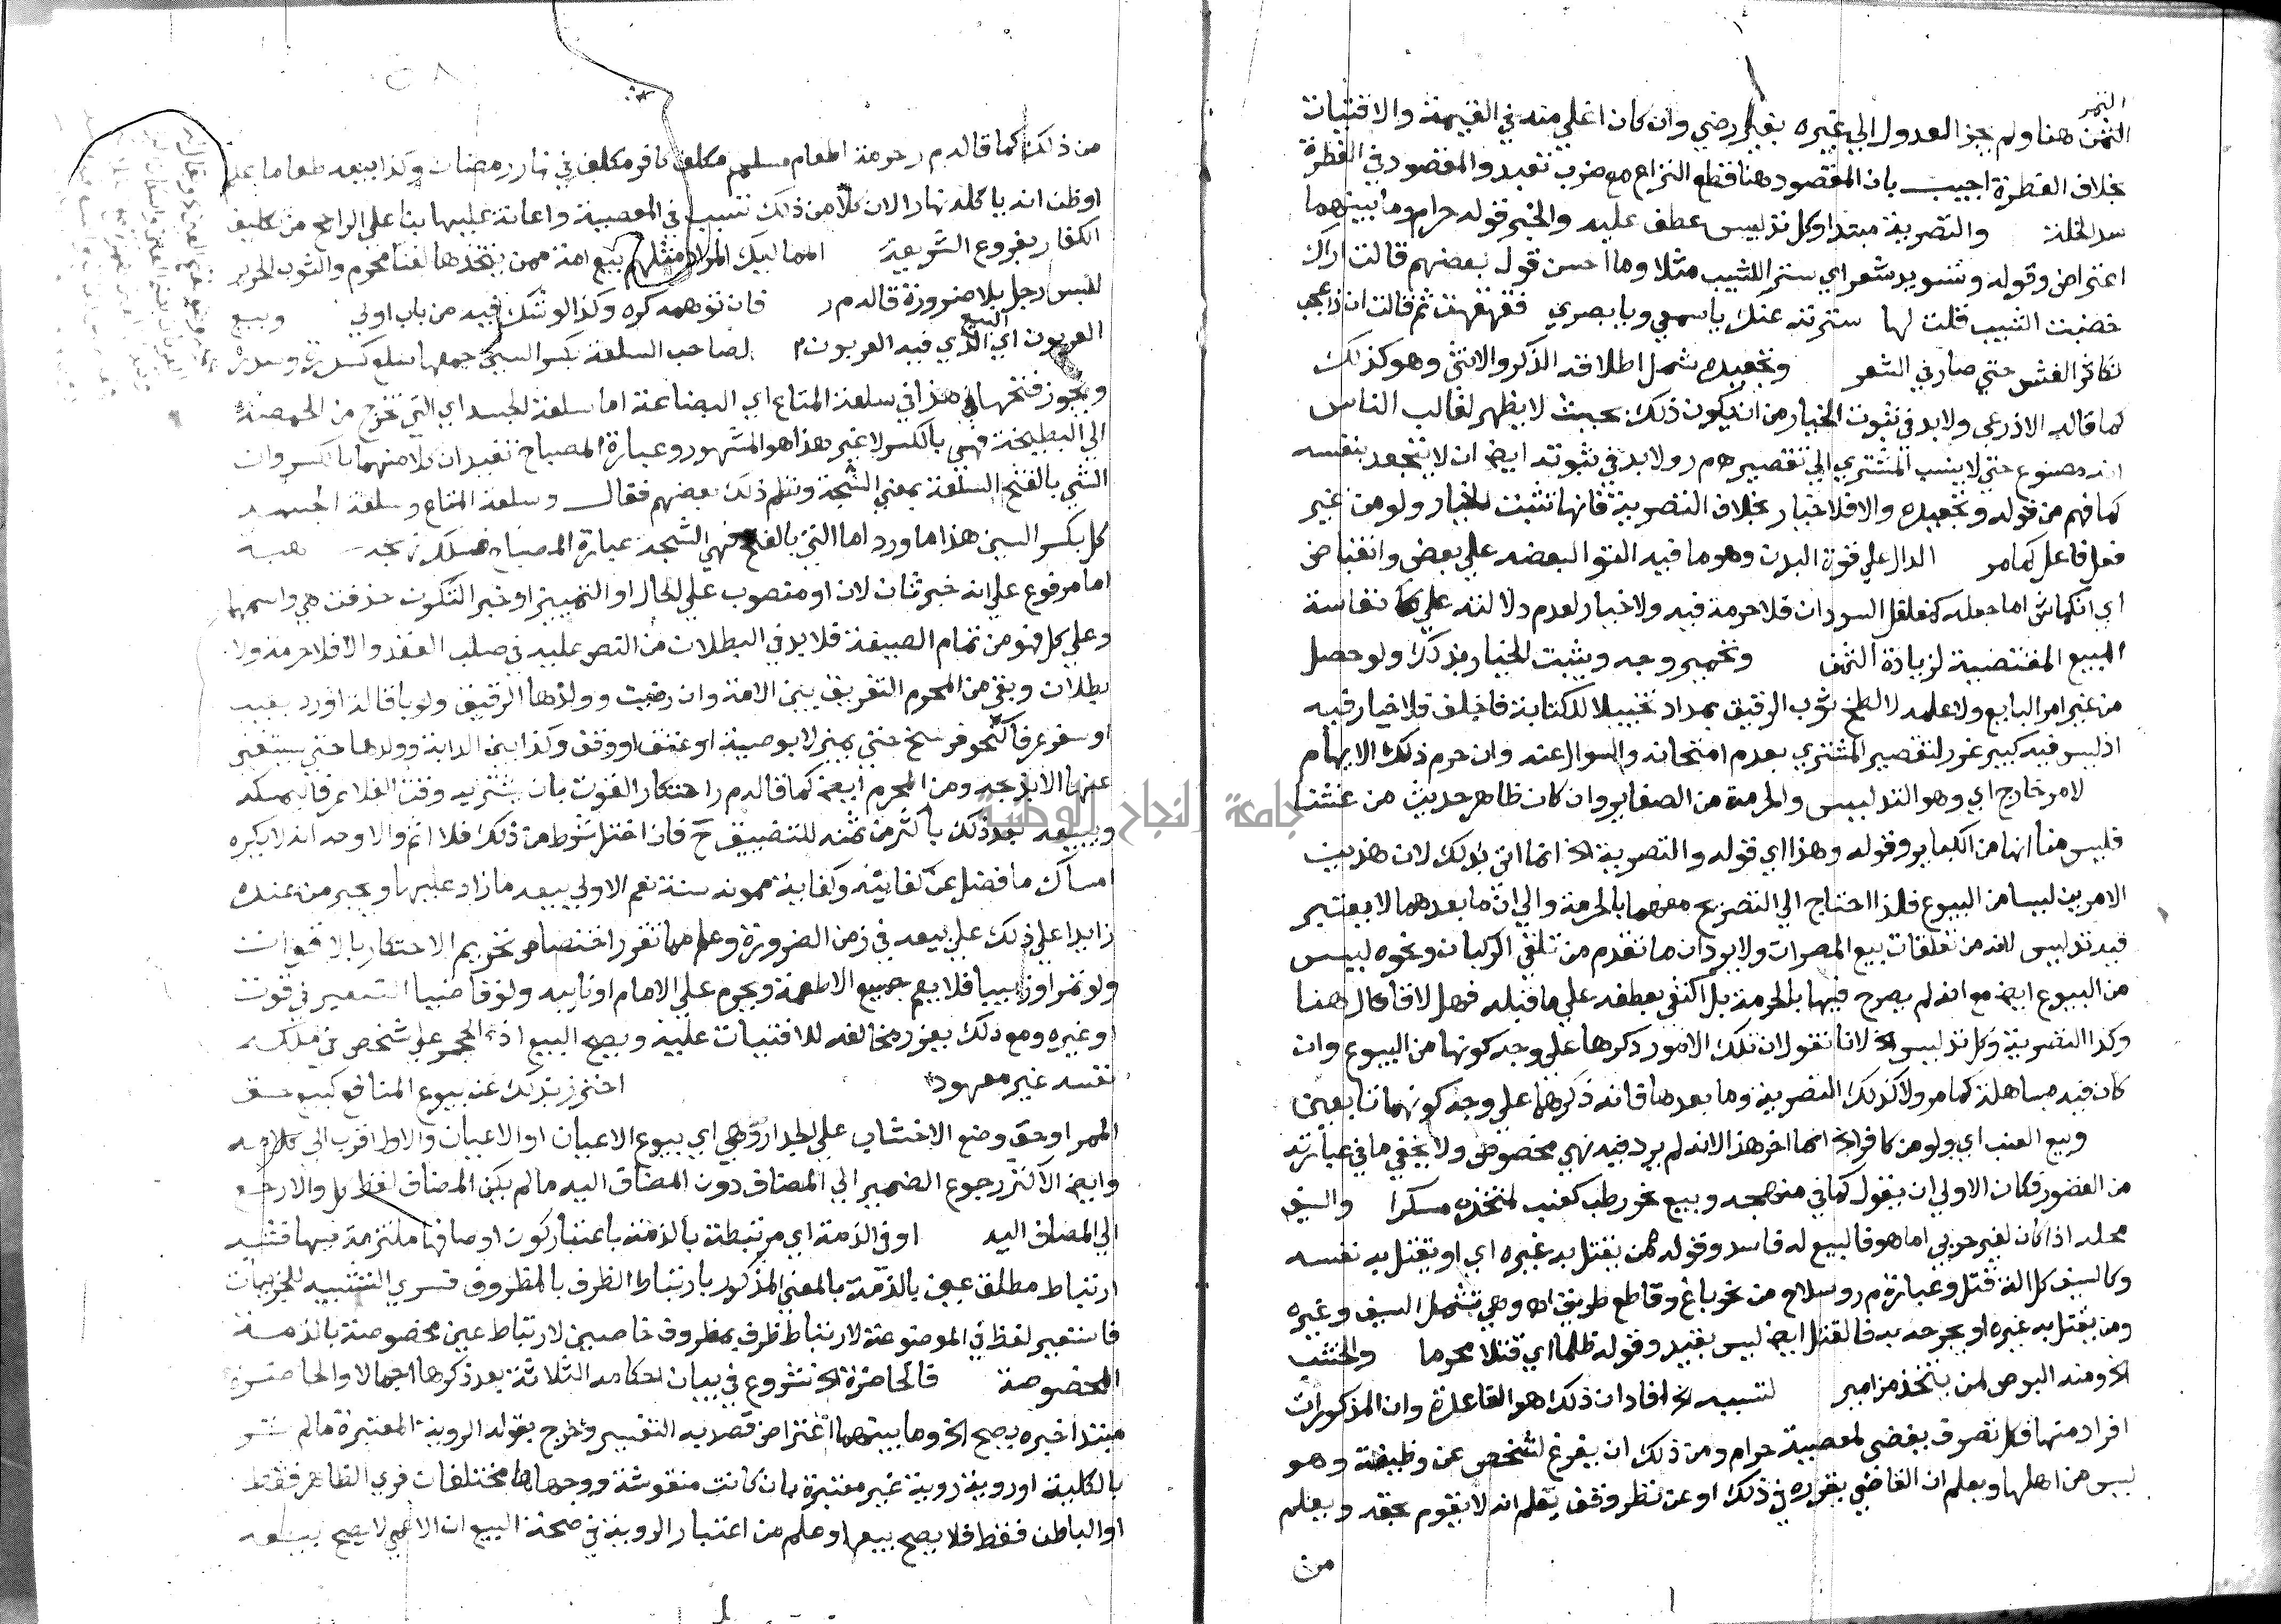 التمر
الثمن هنا ولم يجز العدول الي غيره بغير رضي وان كان اغلي منه في القيمة والاقتيات
بخلاف الفطرة اجيب بان المقصود هنا قطع النزاع مع ضرب تعبد والمقصود في الفطرة
سد الخلة والتصرية مبتدا وكل تدليس عطف عليه والخبر قوله حرام وما بينهما
اعتراض وقوله وتسويد شعر اي ستر اللشيب مثلا وما احسن قول بعضهم قالت اراك
خضبت الشيب قلت لها سترته عنك يا سمعي ويا بصري فقهقهت ثم قالت ان ذا عجب
تكاثر الغش حتي صار في الشعر وتجعيده شمل اطلاقه الذكر والانثي وهو كذلك
كما قاله الاذرعي ولا بد في ثبوت الخيار من ان يكون ذلك بحيث لا يظهر لغالب الناس
انه مصنوع حتي لا ينسب المشتري الي تقصير هم ر ولا بد في ثبوته ايض ان لا يتجعد بنفسه
كما فهم من قوله وتجعيده والا فلا خيار بخلاف التصرية فانها تثبت الخيار ولو من غير
فعل فاعل كما مر الدال علي قوة البدن وهو ما فيه التوا لبعضه علي بعض وانقباض
اي انكماش اما جعله كمفلفل السودان فلا حرمة فيه ولا خيار لعدم دلالته علي نفاسة
المبيع المقتضية لزيادة الثمن وتحمير وجه ويثبت الخيار بذلك ولو حصل
من غير امر البايع ولا علمه لا لطخ ثوب الرقيق بمداد تخييلا لكتابة فاخلف فلا خيار فيه
اذ ليس فيه كبير غرر لتقصير المشتري بعدم امتحانه والسوال عنه وان حرم ذلك الايهام
لامر خارج اي وهو التدليس والحرمة من الصغاير وان كان ظاهر حديث من غشنا
فليس منا انها من الكباير وقوله وهذا اي قوله والتصرية الخ انما اتي بذلك لان هذين
الامرين ليسا من البيوع فلذا احتاج الي التصريح معهما بالحرمة والي ان ما بعدهما لا يعتبر
فيه تدليس لانه من تعلقات بيع المصرات ولا يرد ان ما تقدم من تلقي الركبان ونحوه ليس
من البيوع ايض مع انه لم يصرح فيها بالحرمة بل اكتفي بعطفه علي ما قبله فهل لا قال هنا
وكذا التصرية وكل تدليس الخ لانا نقول ان تلك الامور ذكرها علي وجه كونها من البيوع وان
كان فيه مساهلة كما مر ولا كذلك التصرية وما بعدها فانه ذكرهما علي وجه كونهما تابعين
وبيع العنب اي ولو من كافر الخ انما اخر هذا لانه لم يرد فيه نهي مخصوص ولا يخفي ما في عبارته
من القصور فكان الاولي ان يقول كما في منهجه وبيع نحو رطب كعنب لمتخذه مسكرا والسيف
محله اذا كان لغير حربي اما هو فالبيع له فاسد وقوله ممن يقتل به غيره اي او يقتل به نفسه
وكالسيف كل الة قتل وعبارة م ر وسلاح من نحو باغ وقاطع طريق اه وهي تشمل السيف وغيره
ومن يقتل به غيره او يجرحه به فالقتل ايض ليس بقيد وقوله ظلما اي قتلا محرما والخشب
الخ ومنه البوص لمن يتخذه مزامير لتسببه الخ افاد ان ذلك هو القاعدة وان المذكورات
افراد منها فكل تصرف يفضي لمعصية حرام ومن ذلك ان يفرغ لشخص عن وظيفة وهو
ليس من اهلها ويعلم ان القاضي يقرره في ذلك او عن نظر وقف يعلم انه لا يقوم بحقه ويعلم
من
من ذلك كما قاله م ر حرمة اطعام مسلم مكلف كافر مكلف في نهار رمضان وكذا بيعه طعاما علم
او ظن انه ياكله نهارا لان كلا من ذلك تسبب في المعصية واعانة عليها بنا علي الراجح من تكليف
الكفار بفروع الشريعة المماليك المراد مثلهم بيع امة ممن يتخذها لغنا محرم والثوب الحرير
للبس رجل بلا ضرورة قاله م ر فان توهمه كره وكذا لو شك فيه من باب اولي وبيع
البيع
العربون اي الذي فيه العربون لصاحب السلعة بكسر السين جمعها سلع كسدرة وسدر
ويجوز فتحها في هذا في سلعة المتاع اي البضاعة اما سلعة الجسد اي التي تخرج من الحمصة
الي البطيخة فهي بالكسر لا غير هذا هو المشهور وعبارة المصباح تفيد ان كلا منهما بالكسر وان
التي بالفتح السلعة بمعني الشجة ونظم ذلك بعضهم فقال وسلعة المتاع وسلعة الجسد
كل بكسر السين هذا ما ورد اما التي بالفتح فهي الشجه عبارة المصباح فسلكن نجد هبه
اما مرفوع علي انه خبر ثان لان او منصوب علي الحال او التمييز او خبر لتكون حذفت هي واسمها
وعلي كل فهو من تمام الصيغة فلا بد في البطلان من النص عليه في صلب العقد والا فلا حرمة ولا
بطلان وبقي من المحرم التفريق بين الامة وان رضيت وولدها الرقيق ولو باقالة او رد بعيب
او سفر عرفا كنحو فرسخ حتي يميز لا بوصية او عتق او وقف وكذا بين الدابة وولدها حتي يستغني
عنها الا لذبحه ومن المحرم ايض كما قاله م ر احتكار القوت بان يشتريه وقت الغلا عرفا ليمسكه
ويبيعه بعد ذلك باكثر من ثمنه للتضييق ح فان اختل شرط من ذلك فلا اثم والاوجه انه لا يكره
امساك ما فضل عن كفايته وكفاية ممونه سنة نعم الاولي بيعه ما زاد عليها ويجبر من عنده
زايدا علي ذلك علي بيعه في زمن الضرورة وعلم مما تقرر اختصاص تحريم الاحتكار بالاقوات
ولو تمرا او زبيبا فلا يعم جميع الاطعمة ويحرم علي الامام او نايبه ولو قاضيا التسعير في قوت
او غيره ومع ذلك يعزر مخالفه للافتيات عليه ويصح البيع اذ الحجر علي شخص في ملكه
نفسه غير معهود احترز بذلك عن بيوع المنافع كبيع حق
الممر او حق وضع الاخشاب علي الجدار وهي اي بيوع الاعيان او الاعيان والاول اقرب الي كلامه
وايض الاكثر رجوع الضمير الي المضاف دون المضاف اليه ما لم يكن المضاف لفظ كل والا رجع
الي المضاف اليه او في الذمة اي مرتبطة بالذمة باعتبار كون اوصافها ملتزمة فيها فشبه
ارتباط مطلق عين بالذمة بالمعني المذكور بارتباط الظرف بالمظروف فسري التشبيه للجزييات
فاستعير لفظ في الموضوعة لارتباط ظرف بمظروف خاصين لارتباط عين مخصوصة بالذمة
المخصوصة فالحاضرة الخ شروع في بيان احكامه الثلاثة بعد ذكرها اجمالا والحاضرة
مبتدا خبره يصح الخ وما بينهما اعتراض قصد به التفسير وخرج بقوله الروية المعتبرة ما لم تر
بالكلية او روية روية غير معتبرة بان كانت منقوشة ووجهاها مختلفان فري الظاهر فقط
او الباطن فقط فلا يصح بيعها وعلم من اعتبار الروية في صحة البيع ان الاعمي لا يصح بيعه
جامعة النجاح الوطنية